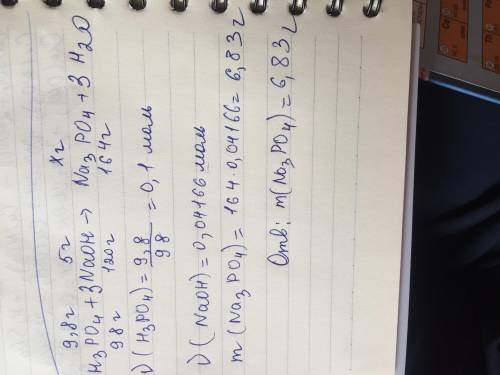 9,8г 5г xг
H3PO4 + 3NaOH → Na3PO4 + 3H2O
98г 120г 164г
ν(H3PO4) = 9,8/98 = 0,1 моль
ν(NaOH) = 0,04166 моль
m(Na3PO4) = 164·0,04166 = 6,83г
Отв: m(Na3PO4) = 6,83г